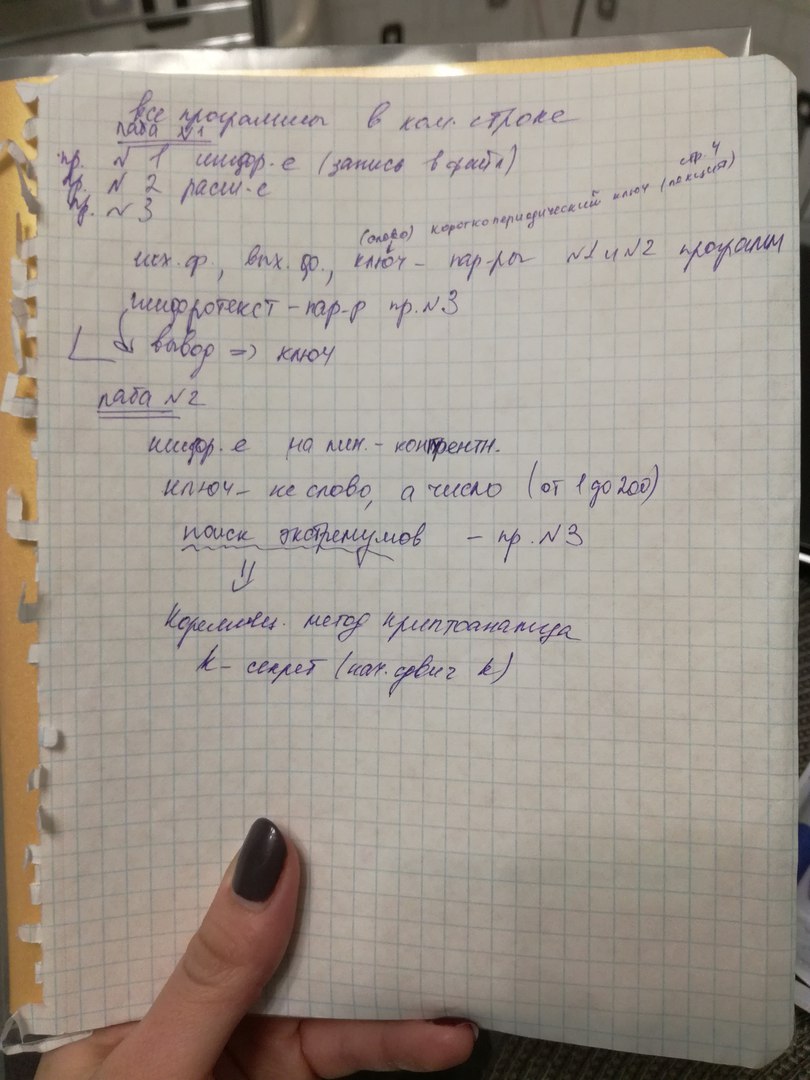 все программы в ком. строке
лаба №1
пр. №1 шифр-е (запись в файл)
пр. №2 расш-е
пр. №3
(слово) короткопериодический ключ (лекция) стр. 4
исх. ф., вых. ф., ключ - пар-ры №1 и №2 программ
шифротекст - пар-р пр. №3
вывод => ключ
лаба №2
шифр-е на лин. - конгруентн.
ключ - не слово, а число (от 1 до 200)
поиск экстремумов - пр. №3
метод криптоанализа
k - секрет (нач. сдвиг k)